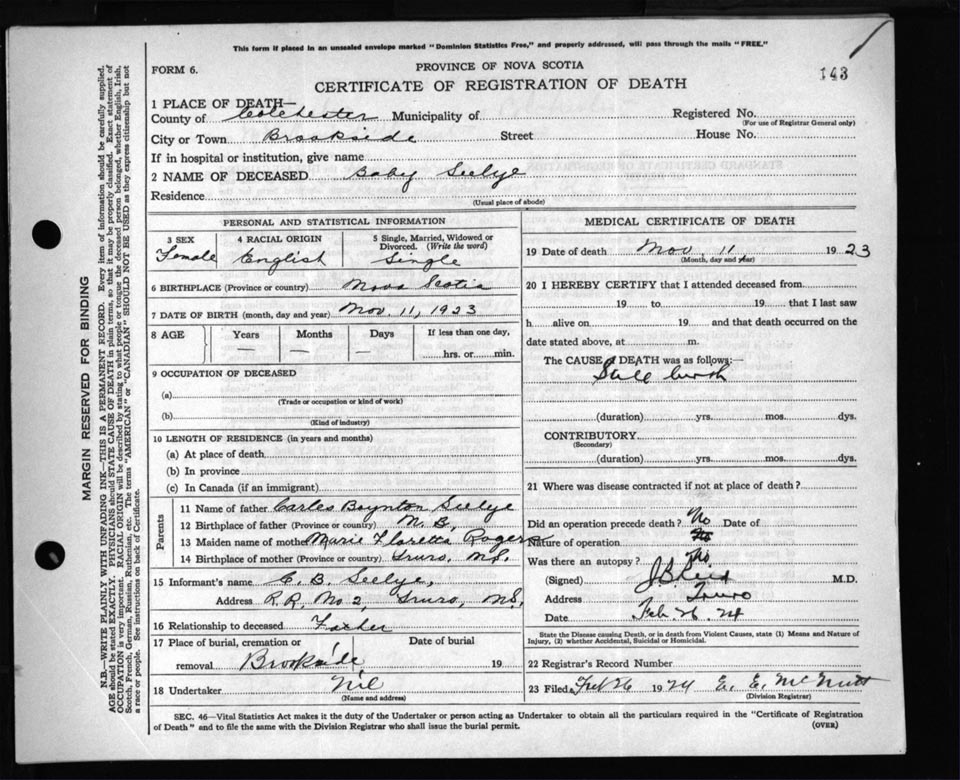 This form if placed in an unsealed envelope marked "Dominion Statistics Free," and properly addressed, will pass through the mails "FREE."
FORM 6.
PROVINCE OF NOVA SCOTIA
143
CERTIFICATE OF REGISTRATION OF DEATH
1 PLACE OF DEATH—
County of Colchester Municipality of Registered No.
(For use of Registrar General only)
City or Town Brookside Street House No.
If in hospital or institution, give name
2 NAME OF DECEASED Baby Seelye
Residence
(Usual place of abode)
PERSONAL AND STATISTICAL INFORMATION
3 SEX 4 RACIAL ORIGIN 5 Single, Married, Widowed or Divorced. (Write the word)
Female English Single
6 BIRTHPLACE (Province or country) Nova Scotia
7 DATE OF BIRTH (month, day and year) Nov. 11, 1923
8 AGE Years Months Days If less than one day,
— — — hrs. or min.
9 OCCUPATION OF DECEASED
(a)
(Trade or occupation or kind of work)
(b)
(Kind of industry)
10 LENGTH OF RESIDENCE (in years and months)
(a) At place of death
(b) In province
(c) In Canada (if an immigrant)
Parents
11 Name of father Carles Boynton Seelye
12 Birthplace of father (Province or country) N. B.
13 Maiden name of mother Marie Floretta Rogers
14 Birthplace of mother (Province or country) Truro, N.S.
15 Informant's name C. B. Seelye,
Address R.R. No 2, Truro, N.S.
16 Relationship to deceased Father
17 Place of burial, cremation or Date of burial
removal Brookside 19
18 Undertaker Nil
(Name and address)
MEDICAL CERTIFICATE OF DEATH
19 Date of death Nov. 11 1923
(Month, day and year)
20 I HEREBY CERTIFY that I attended deceased from
19 to 19 that I last saw
h alive on 19 and that death occurred on the
date stated above, at m.
The CAUSE of DEATH was as follows:—
Still birth
(duration) yrs. mos. dys.
CONTRIBUTORY
(Secondary)
(duration) yrs. mos. dys.
21 Where was disease contracted if not at place of death?
Did an operation precede death? No Date of
Nature of operation
Was there an autopsy? No
(Signed) M.D.
Address Truro
Date Feb. 26. 24
State the Disease causing Death, or in death from Violent Causes, state (1) Means and Nature of
Injury, (2) whether Accidental, Suicidal or Homicidal.
22 Registrar's Record Number
23 Filed Feb 26 1924 E. E. McNutt
(Division Registrar)
SEC. 46—Vital Statistics Act makes it the duty of the Undertaker or person acting as Undertaker to obtain all the particulars required in the "Certificate of Registration
of Death" and to file the same with the Division Registrar who shall issue the burial permit.
(OVER)
MARGIN RESERVED FOR BINDING
N.B.—WRITE PLAINLY WITH UNFADING INK—THIS IS A PERMANENT RECORD. Every item of information should be carefully supplied.
AGE should be stated EXACTLY. PHYSICIANS should STATE CAUSE OF DEATH in plain terms, so that it may be properly classified. Exact statement of
OCCUPATION is very important. RACIAL ORIGIN will be described by stating to what people or tongue the deceased person belonged, whether English, Irish,
Scotch, French, German, Russian, Ruthenian, etc. The terms "AMERICAN" or "CANADIAN" SHOULD NOT BE USED as they express citizenship but not
a race or people. See instructions on back of Certificate.